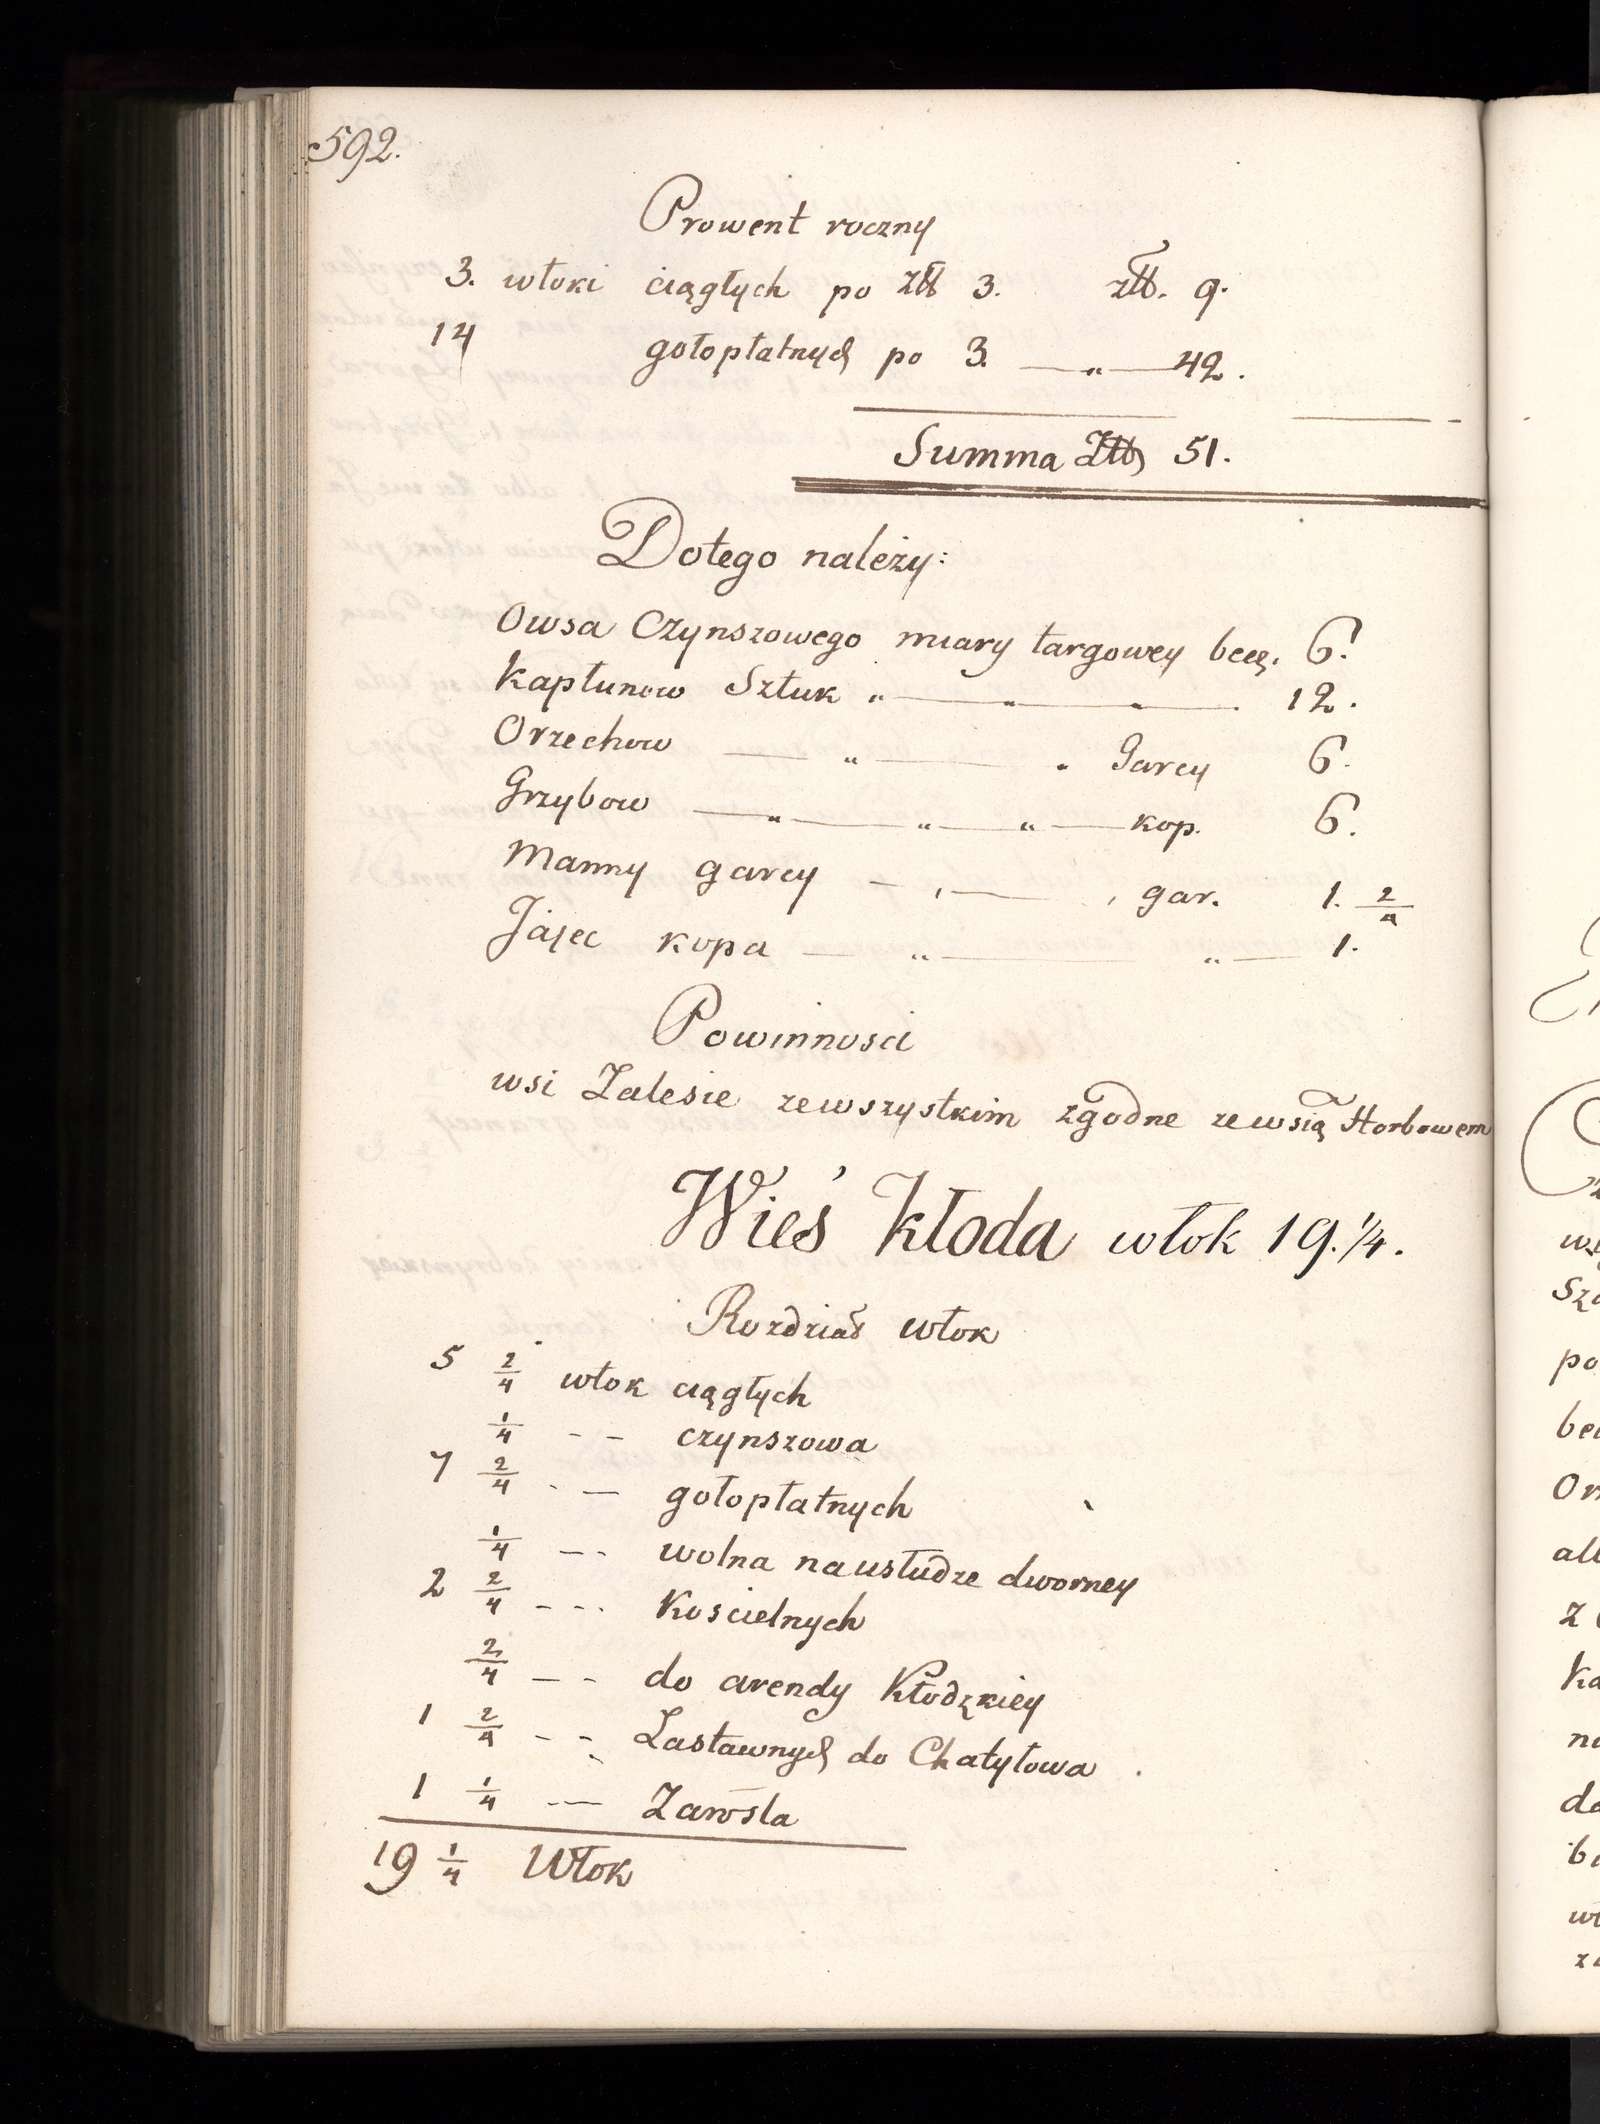 592.
Prowent roczny
3. włoki ciągłych po złł 3. złł. 9.
14 gołopłatnych po 3. — „ — 42.
Summa Złł 51.
Dotego należy:
Owsa Czynszowego miary targowey becz. 6.
Kapłunow Sztuk „ — „ — „ — 12.
Orzechow — „ — „ Garcy 6.
Grzybow — „ — „ — „ — kop. 6.
Manny garcy — „ — „ gar. 1. 2/4
Jajec kopa — „ — „ — 1.
Powinnosci
wsi Zalesie zewszystkim zgodne zewsią Horbowem
Wieś Kłoda włok 19. 1/4.
Rozdział Włok
5 2/4 włok ciągłych
1/4 - - czynszowa
7 2/4 - - gołopłatnych
1/4 - - wolna na usłudze dworney
2 2/4 - - - Koscielnych
2/4 - - do arendy Kłodzkiey
1 2/4 - - Zastawnych do Chatyłowa
1 1/4 - - Zarosla
19 1/4 Włok